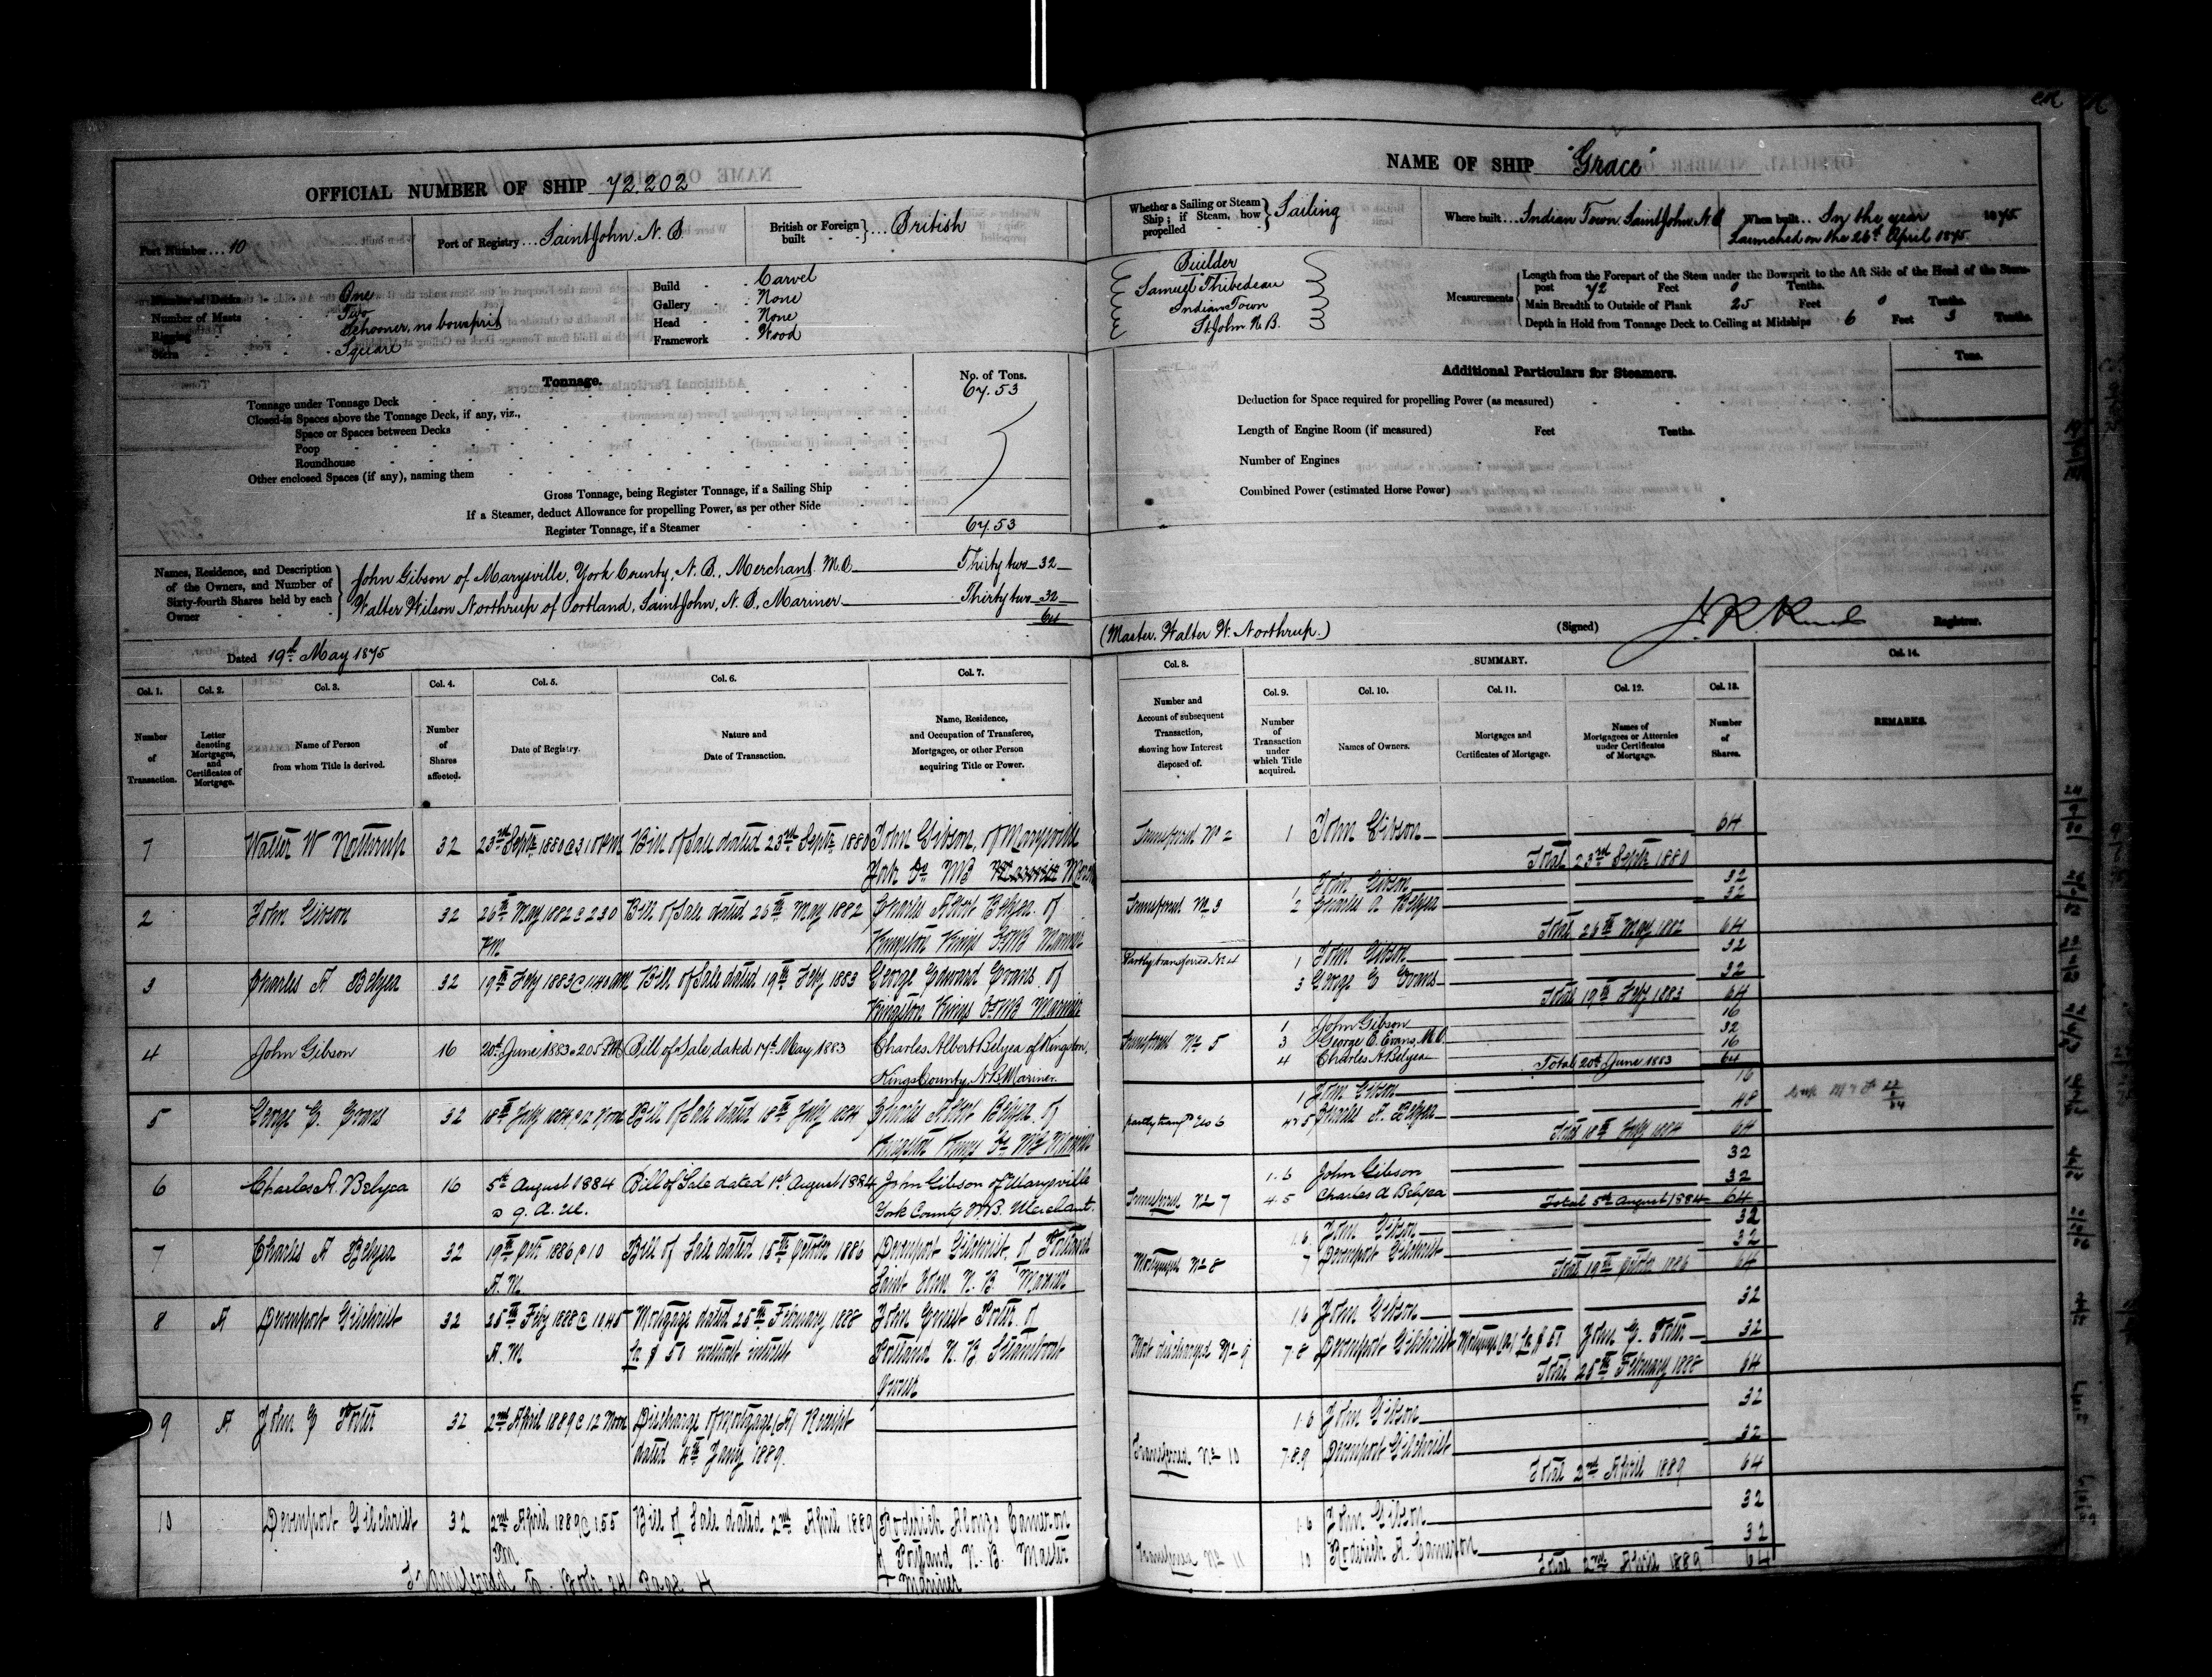 OFFICIAL NUMBER OF SHIP 72.202
Port Number ... 10
Port of Registry ... Saint John. N. B
British or Foreign built } ... British
Number of Decks One
Number of Masts Two
Rigging Schooner, no bowsprit
Stern Square
Build Carvel
Gallery None
Head None
Framework Wood
Tonnage.
No. of Tons.
Tonnage under Tonnage Deck 67.53
Closed-in Spaces above the Tonnage Deck, if any, viz.,
Space or Spaces between Decks
Poop
Roundhouse
Other enclosed Spaces (if any), naming them
Gross Tonnage, being Register Tonnage, if a Sailing Ship
If a Steamer, deduct Allowance for propelling Power, as per other Side
Register Tonnage, if a Steamer 67.53
Names, Residence, and Description of the Owners, and Number of Sixty-fourth Shares held by each Owner
John Gibson of Marysville, York County, N. B., Merchant. M.O. Thirty two 32
Walter Wilson Northrup of Portland, Saint John, N. B., Mariner Thirty two 32
64
Dated 19th May 1875
Col. 1. Col. 2. Col. 3. Col. 4. Col. 5. Col. 6. Col. 7.
Number of Transaction.
Letter denoting Mortgages, and Certificates of Mortgage.
Name of Person from whom Title is derived.
Number of Shares affected.
Date of Registry.
Nature and Date of Transaction.
Name, Residence, and Occupation of Transferee, Mortgagee, or other Person acquiring Title or Power.
1 Walter W Northrup 32 23rd Septr 1880 @ 3 10 PM Bill of Sale dated 23rd Septr 1880 John Gibson, of Marysville
York Co NB
2 John Gibson 32 26th May 1882 @ 2 30 Bill of Sale dated 26th May 1882 Charles Albert Belyea of
PM Kingston Kings Co NB Mariner
3 Charles A Belyea 32 19th Feby 1883 @ 11 40 am Bill of Sale dated 19th Feby 1883 George Edward Evans of
Kingston Kings Co NB Mariner
4 John Gibson 16 20th June 1883 @ 2 05 P.M Bill of Sale, dated 17th May 1883 Charles Albert Belyea of Kingston,
Kings County, N.B Mariner.
5 George E. Evans 32 18th July 1884 @ 12 Noon Bill of Sale dated 18th July 1884 Charles Albert Belyea of
Kingston Kings Co NB Mariner
6 Charles A. Belyea 16 5th August 1884 Bill of Sale dated 1st August 1884 John Gibson of Marysville
@ 9. A. M. York County N.B. Merchant.
7 Charles A Belyea 32 19th Oct 1886 @ 10 Bill of Sale dated 15th October 1886 Devenport Gilchrist of Portland
A.M. Saint John N. B Mariner
8 A Devenport Gilchrist 32 25th Feby 1888 @ 10.45 Mortgage dated 25th February 1888 John Ernest Porter of
A.M for $ 50 without interest Portland N. B Steamboat
Owner
9 A John E Porter 32 2nd April 1889 @ 12 Noon Discharge of Mortgage (A) Receipt
dated 4th Jany 1889.
10 Devenport Gilchrist 32 2nd April 1889 @ 1.55 Bill of Sale dated 2nd April 1889 Roderick Alonzo Cameron
PM of Portland N. B. Master
Mariner
Transferred to Book 24 Page 4
NAME OF SHIP "Grace"
Whether a Sailing or Steam Ship; if Steam, how propelled } Sailing
Where built ... Indian Town. Saint John. N. B
When built ... In the year 1875.
Launched on the 26th April 1875.
Builder
Samuel Thibedeau
Indian Town
St John N. B.
Measurements
Length from the Forepart of the Stem under the Bowsprit to the Aft Side of the Head of the Stern-
post 72 Feet 0 Tenths.
Main Breadth to Outside of Plank 25 Feet 0 Tenths.
Depth in Hold from Tonnage Deck to Ceiling at Midships 6 Feet 3 Tenths.
Additional Particulars for Steamers.
Tons.
Deduction for Space required for propelling Power (as measured)
Length of Engine Room (if measured) Feet Tenths.
Number of Engines
Combined Power (estimated Horse Power)
(Master. Walter W. Northrup.)
(Signed) Registrar.
Col. 8. SUMMARY. Col. 14.
Col. 9. Col. 10. Col. 11. Col. 12. Col. 13.
Number and Account of subsequent Transaction, showing how Interest disposed of.
Number of Transaction under which Title acquired.
Names of Owners.
Mortgages and Certificates of Mortgage.
Names of Mortgagees or Attornies under Certificates of Mortgage.
Number of Shares.
REMARKS.
Transferred No 2 1 John Gibson 64
Total 23rd Septr 1880
1 John Gibson 32
Transferred No 3 2 Charles A Belyea 32
Total 26th May 1882 64
Partly transferred No 4 1 John Gibson 32
3 George E Evans 32
Total 19th Feby 1883 64
1 John Gibson 16
Transferred No 5 3 George E. Evans, M.O. 32
4 Charles A Belyea 16
Total 20th June 1883 64
1 John Gibson 16
partly transfd No 6 4 & 5 Charles A. Belyea 48
Total 18th July 1884 64
1. 6 John Gibson 32
Transferred No 7 4. 5 Charles A Belyea 32
Total 5th August 1884 64
1.6 John Gibson 32
Mortgaged No 8 7 Devenport Gilchrist 32
Total 19th October 1886 64
1 6 John Gibson 32
Mort discharged No 9 7.8 Devenport Gilchrist Mortgage (A) for $ 50 John E. Porter 32
Total 25th February 1888 64
1.6 John Gibson 32
Transferred No 10 7.8.9 Devenport Gilchrist 32
Total 2nd April 1889 64
1.6 John Gibson 32
Transferred No 11 10 Roderick A. Cameron 32
Total 2nd April 1889 64